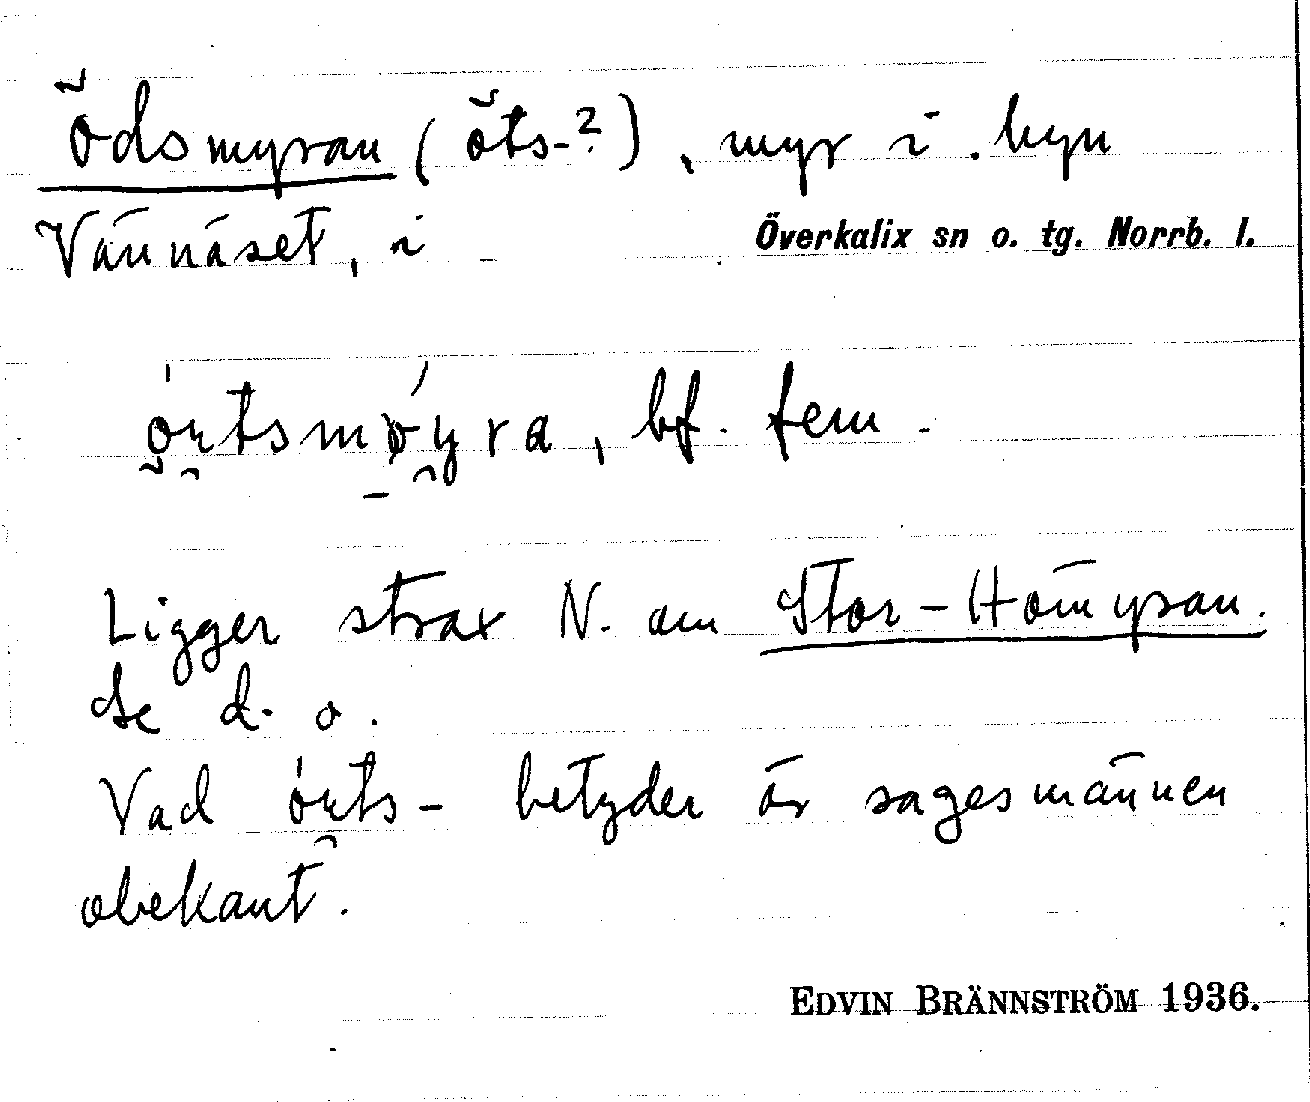 Ödsmyran (öts-?), myr i byn
Vännäset, i Överkalix sn o. tg. Norrb. l.
bf. fem.
Ligger strax N. om Stor-Hömyran.
Se d. o.
Vad betyder är sagesmännen
obekant.
EDVIN BRÄNNSTRÖM 1936.